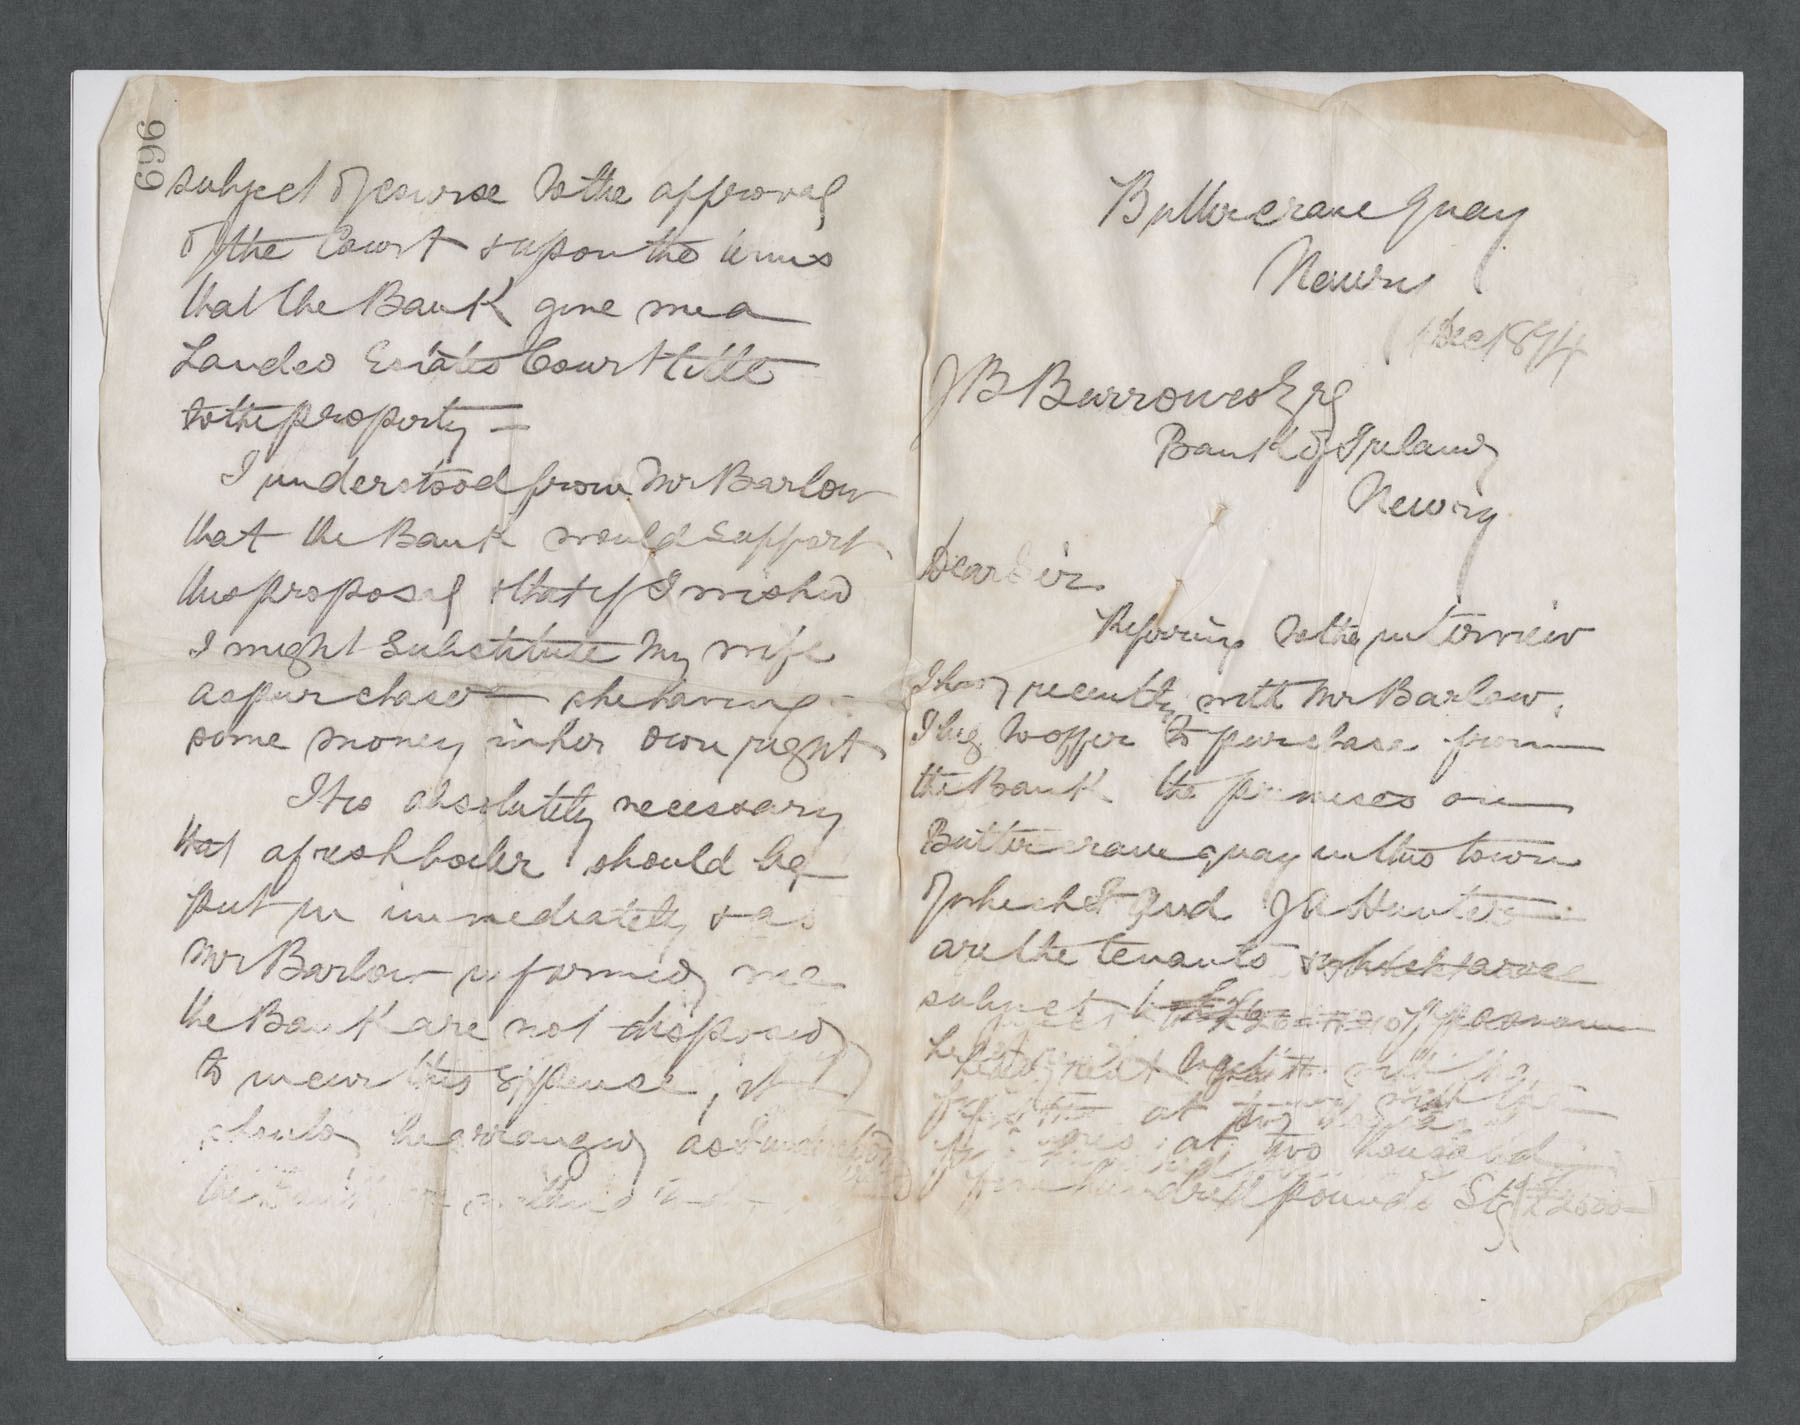 Buttercrane Quay
Newry
1 Dec 1874
J B Burrowes Esq
Bank of Ireland
Newry
Dear Sir
Referring to the interview
I had recently with Mr Barlow,
I beg to offer to purchase from
the Bank the premises on
Buttercrane quay in this town
of which & J A Hunter
are the tenants
subject to
head rent
at
at two thousand
five hundred pounds Stg (£2500
969
subject of course to the approval
of the Court & upon the terms
that the Bank give me a
Landed Estates Court title
to the property —
I understood from Mr Barlow
that the Bank would support
this proposal & that if I wished
I might substitute my wife
as purchaser — she having
some money in her own right
It is absolutely necessary
that a fresh boiler should be
put in immediately & as
Mr Barlow informed me
the Bank are not disposed
to incur this expense, it
should be arranged as
the